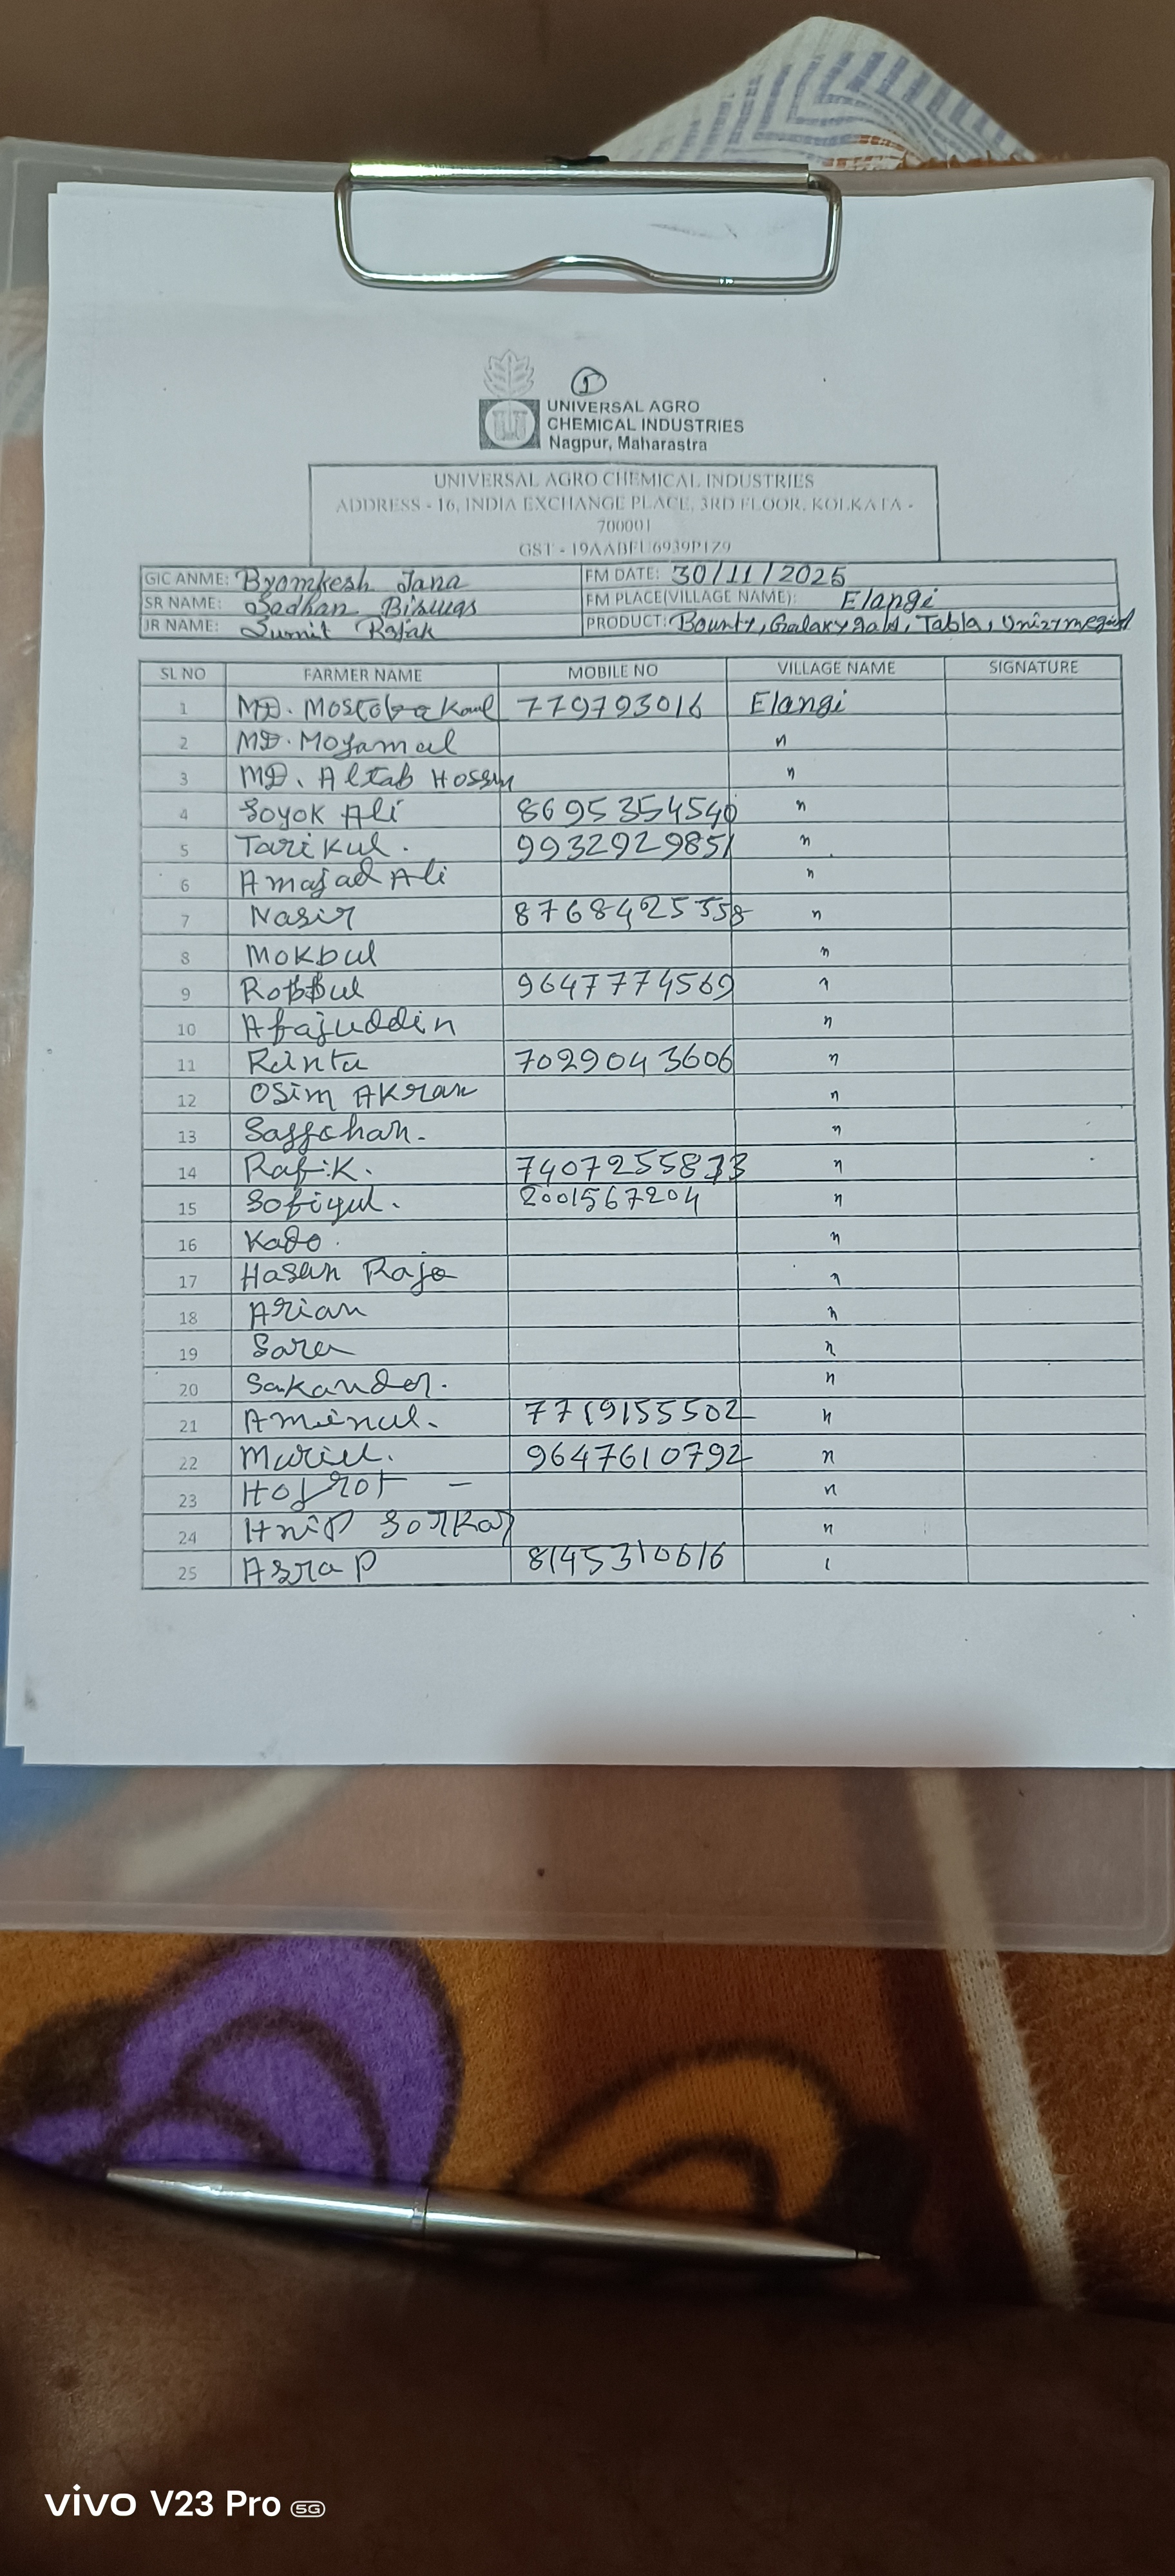 5
UNIVERSAL AGRO
CHEMICAL INDUSTRIES
Nagpur, Maharastra
UNIVERSAL AGRO CHEMICAL INDUSTRIES
ADDRESS - 16, INDIA EXCHANGE PLACE, 3RD FLOOR, KOLKATA -
700001
GST - 19AABFU6939P1Z9
GIC ANME: Byomkesh Jana FM DATE: 30/11/2025
SR NAME: Sadhan Biswas FM PLACE(VILLAGE NAME): Elangi
JR NAME: Sumit Rajak PRODUCT: Bounty, Galaxy gold, Tabla,
SL NO FARMER NAME MOBILE NO VILLAGE NAME SIGNATURE
1 MD. 779793016 Elangi
2 MD. Moyamal "
3 MD. Altab Hossin "
4 Soyok Ali 8695354540 "
5 Tarikul. 9932929851 "
6 Amajad Ali "
7 Nasir 8768425558 "
8 Mokbul "
9 9647774569 "
10 Afajuddin "
11 Ranta 7029043606 "
12 Osim Akran "
13 "
14 Rafik. "
15 Sofiqul. 2001567204 "
16 Kado. "
17 Hasan Raja "
18 Arian "
19 Sara "
20 Sakander. "
21 Aminul. 7719155502 "
22 9647610792 "
23 Hojrot - "
24 "
25 Asrap 8145310616
vivo V23 Pro 5G